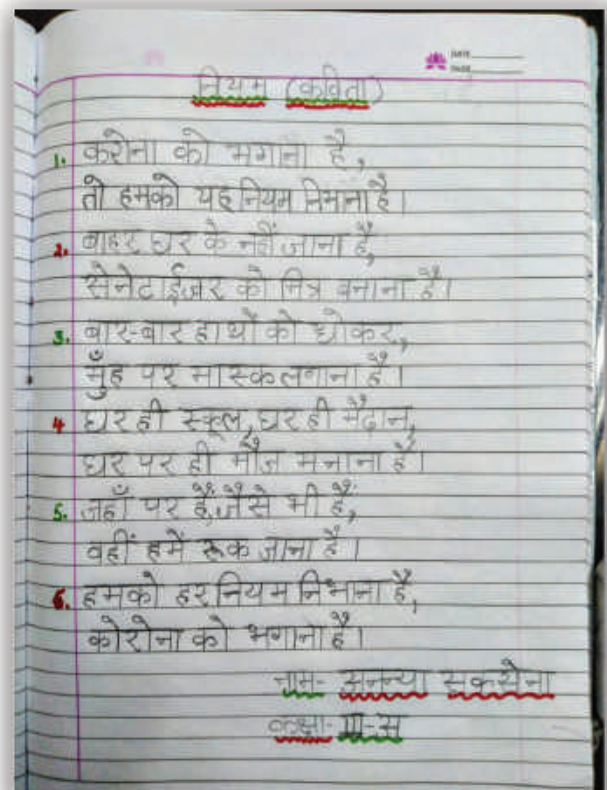 DATE
PAGE
नियम (कविता)
1. करोना को भगाना है,
तो हमको यह नियम निभाना है।
2. बाहर घर के नहीं जाना है,
सेनेटाईजर को मित्र बनाना है।
3. बार-बार हाथों को धोकर,
मुँह पर मास्क लगाना है।
4 घर ही स्कूल, घर ही मैदान,
घर पर ही मौज मनाना है।
5. जहाँ पर हैं, जैसे भी हैं,
वहीं हमें रूक जाना है।
6. हमको हर नियम निभाना है,
कोरोना को भगाना है।
नाम- अनन्या सकसेना
कक्षा- III-स